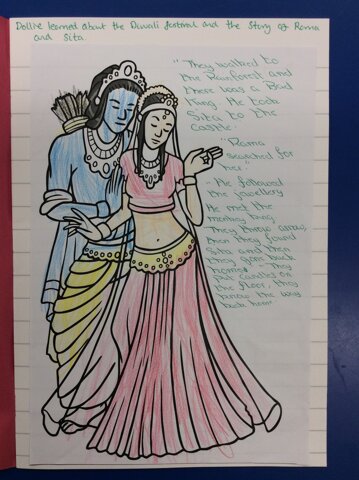 Dollie learned about the Diwali festival and the Story of Rama
and Sita.
"They walked to
the Rainforest and
there was a Bad
King. He took
Sita to the
Castle."
"Rama
searched for
her."
"He followed
the jewellery
He met the
monkey king
They threw arrow,
then they found
Sita and then
they gone back
home. They
put candles on
the floor, they
know the way
back home